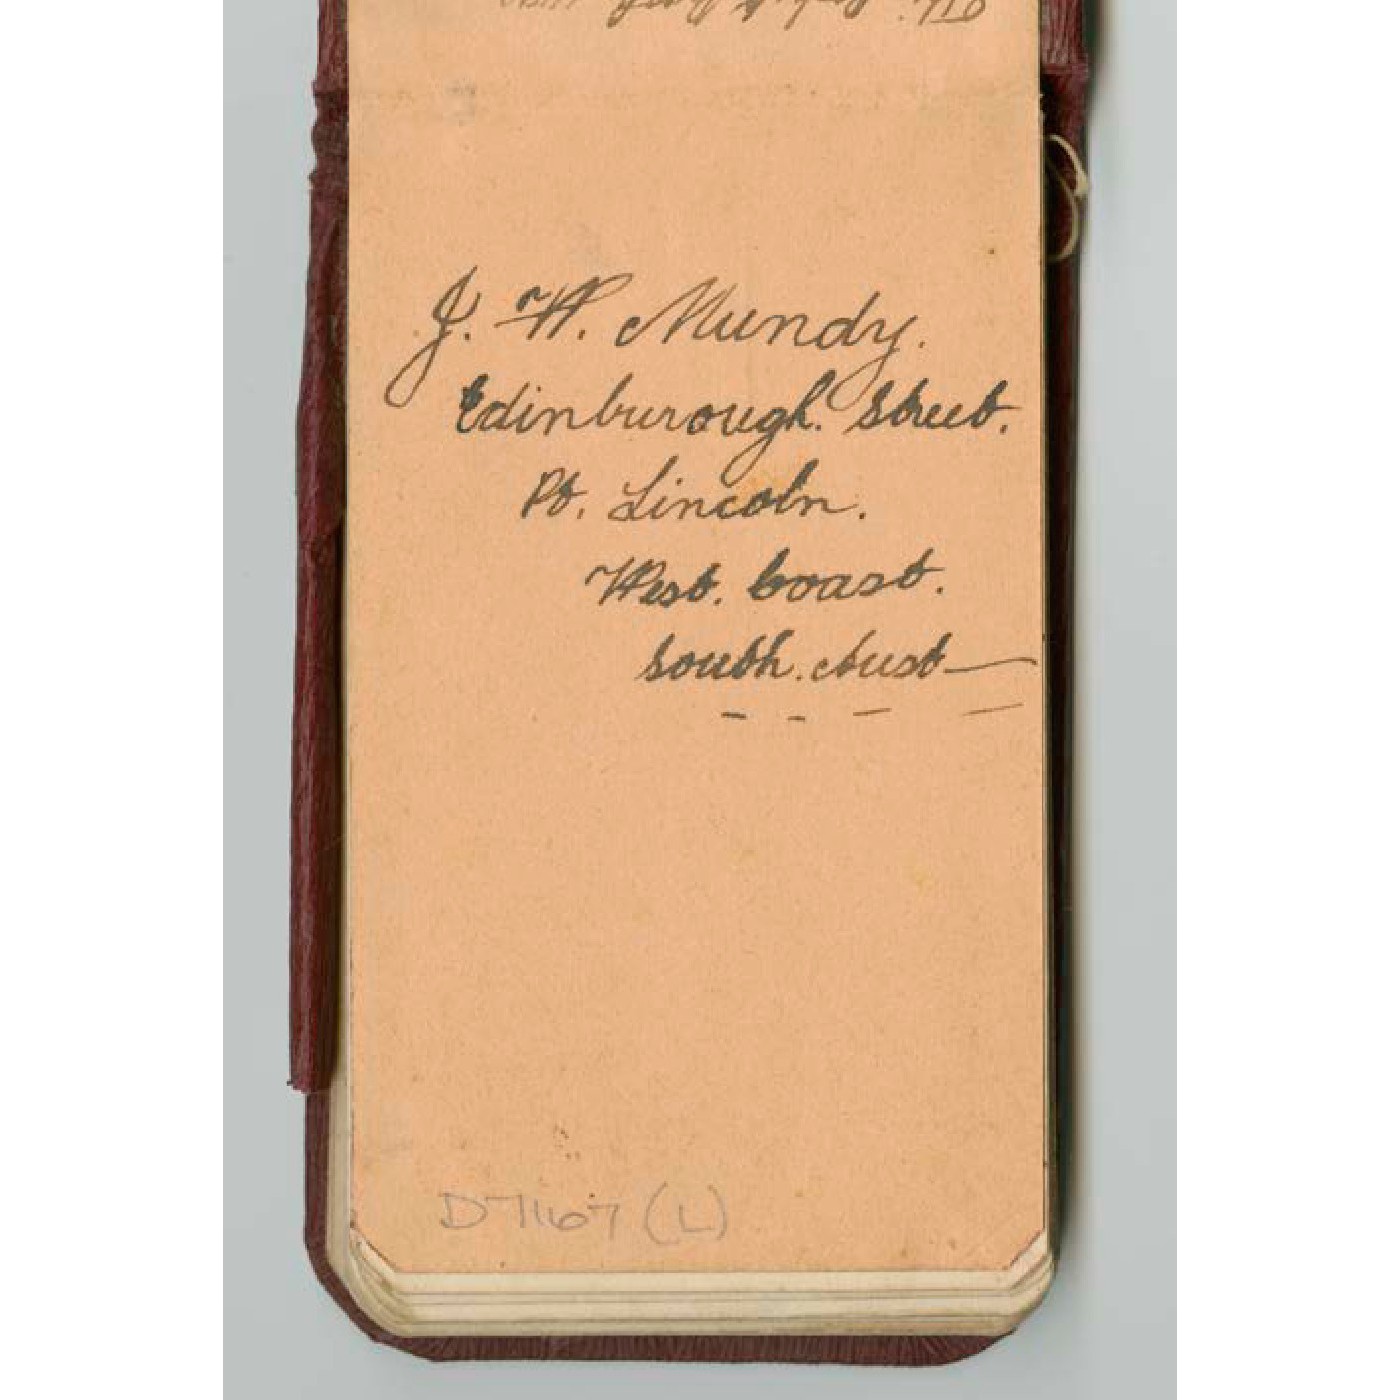 J. W. Mundy.
Edinburough. Street.
Pt. Lincoln.
West. Coast.
South. Aust
D7167 (L)